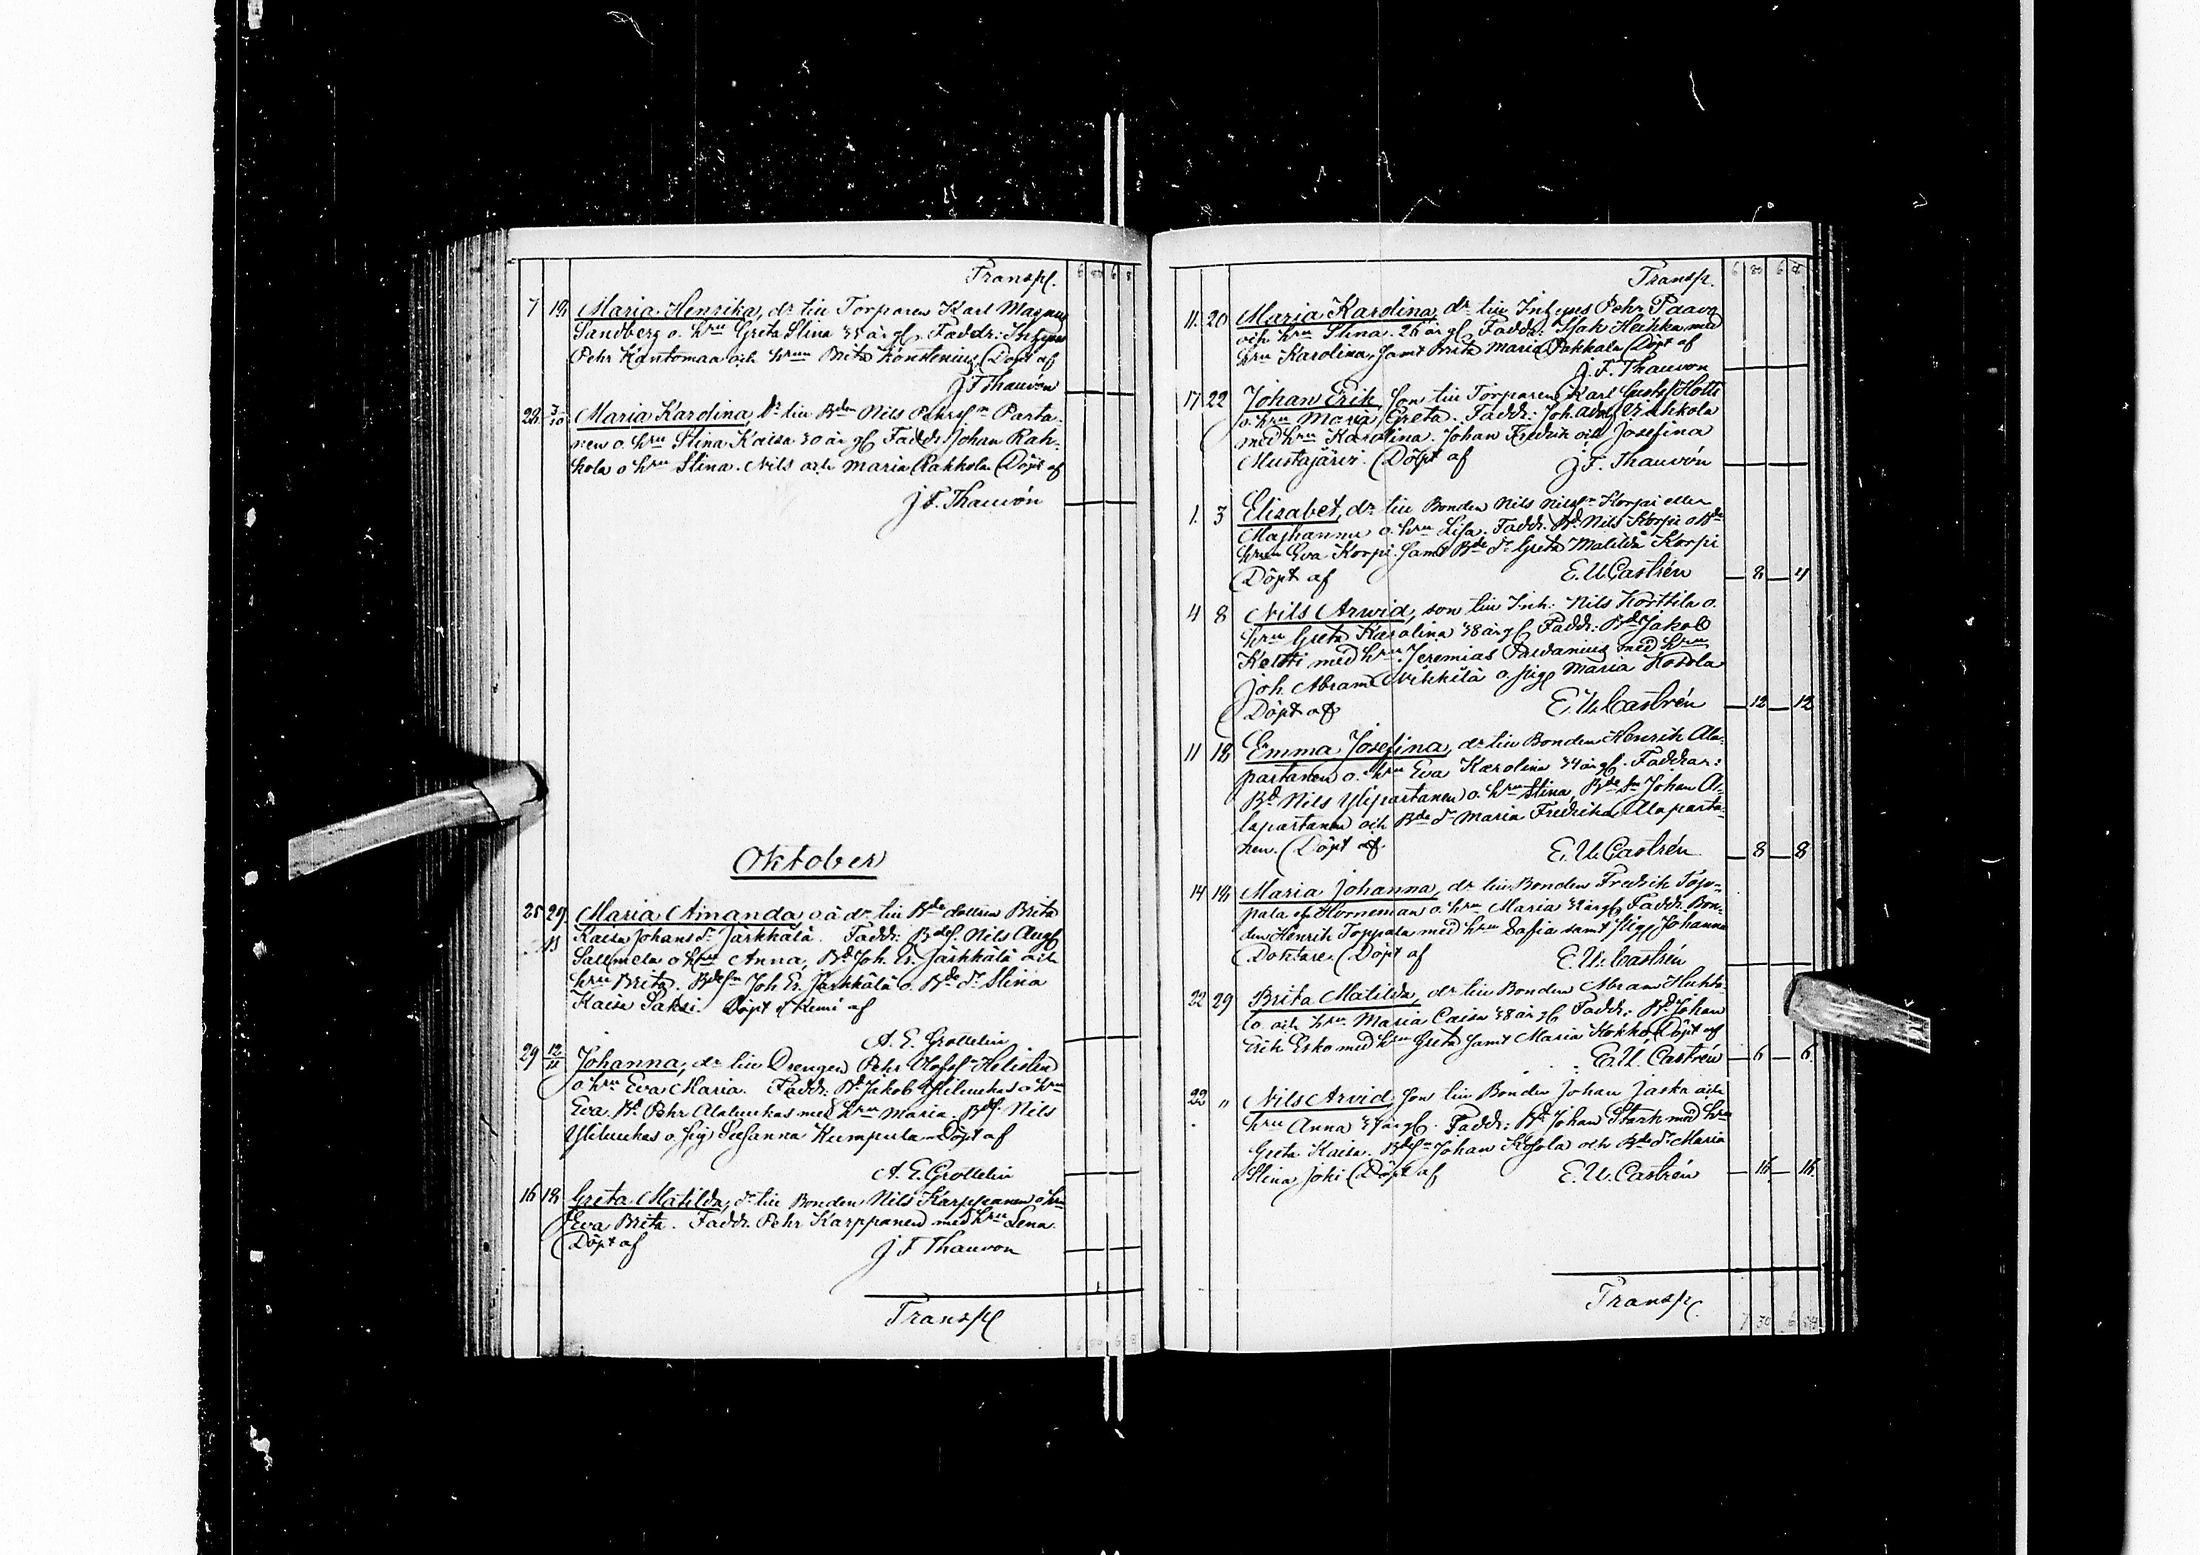 Transp.
7 18 Maria Henrika, dr till Torparen Karl Magnus
Sandberg o. hru Greta Stina 35 år gl. Faddr: Inhyses
Pehr Kantomaa och hrun Brita Döpt af
J F Thauvón
28 3/10 Maria Karolina, dr till Bden Nils Parta-
nen o. hru Stina Kaisa 30 år gl. Faddr Johan Rah-
kola o hru Stina. Nils och Maria Rahkola Döpt af
J F. Thauvón
Oktober
25 29 Maria Amanda, o ä dr till Bde dottren Brita
11 Kaisa Johans dr Järkkälä. Faddr: Nils Aug
o hru Anna, Bd Joh. Er. Järkkälä och
hru Brita. Joh Er. Järkkälä o. Bde dr Stina
Kaisa Saksi. Döpt i Kemi af
A. E. Grottelin
29 12/11 Johanna, dr till Drengen Pehr
o hru Eva Maria. Faddr. Bd Jakob Yliluukas o hru
Eva. Bd Pehr Alaluukas med hru Maria. Nils
Yliluukas o. pig Susanna Kumpula Döpt af
A. E. Grottelin
16 18 Greta Matilda, dr till Bonden Nils Karppanen o hru
Eva Brita. Faddr. Pehr Karppanen med hru Lena.
Döpt af J F Thauvon
Transp
Transp.
11. 20 Maria Karolina, dr till Inhyses Pehr Paavo
och hru Stina. 26 år gl Faddr: med
hru Karolina, samt Brita Maria Döpt af
J. F. Thauvon
17 22 Johan Erik Son till Torparen Karl Gustaf Hotti
o. hru Maria Greta. Faddr: Joh. Adolf
med hru Karolina. Johan Fredrik och Josefina
Mustajärvi. Döpt af J. F. Thauvón
1. 3 Elisabet, dr till Bonden Nils Korpi eller
Majhannu o. hru Lisa. Faddr. Bd Nils Korpi o Bde
hrun Eva Korpi. Samt Bde dr Greta Matilda Korpi
Döpt af E. U. Castrén 8 4
4 8 Nils Arwid, son till Inh: Nils Korttila o.
hru Greta Karolina 38 år gl Faddr: Bd Jakob
med hru. Jeremias med hru
Joh. Abram Nikkilä o. pig Maria Kosola
Döpt af E. U. Castrén 12 12
11 18 Emma Josefina, dr till Bonden Henrik Ala-
partanen o. hru Eva Karolina 34 år gl. Faddrar:
Bd Nils Ylipartanen o. hru Stina, Bde Sn Johan A-
lapartanen och Bde dr Maria Fredrika Alaparta-
nen. Döpt af E. U. Castrén 8 8
14 18 Maria Johanna, dr till Bonden Fredrik Top-
pala Horneman o. hru Maria 32 år gl Faddr. Bon-
den Henrik Toppala med hru Sofia samt pig Johanna
Döpt af E. U. Castrén
22 29 Brita Matilda, dr till Bonden Abram Huhta-
lo och hru Maria Caisa 38 år gl Faddr: Bd Johan
Erik Esko med hru Greta samt Maria Kokko Döpt af
E. U. Castrén 6 6
22 " Nils Arvid Son till Bonden Johan Jaska och
hru Anna 37 år gl. Faddr: Bd Johan Stark med hru
Greta Kaisa. Johan Kosola och Bde dr Maria
Stina Joki Döpt af E. U. Castrén 16 16
Transp.